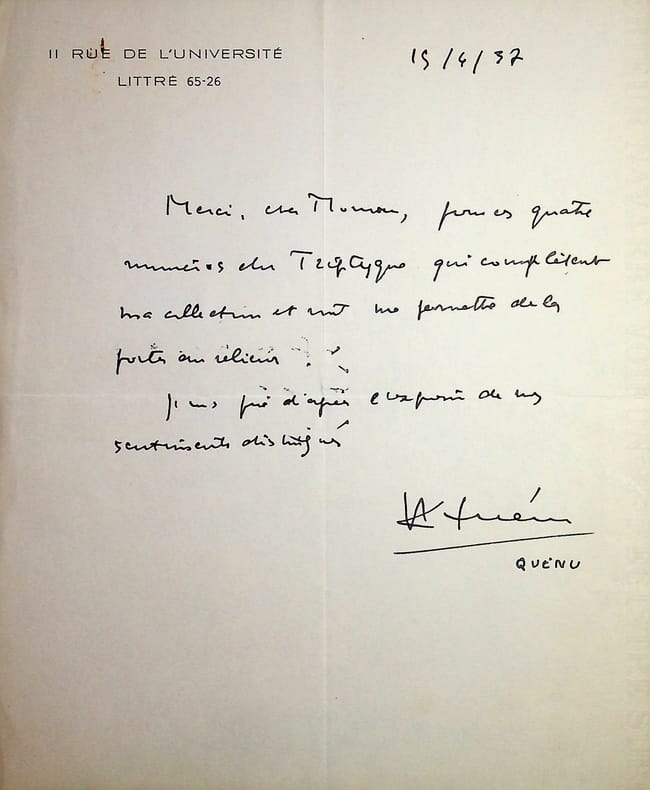 11 RUE DE L'UNIVERSITÉ
LITTRÉ 65-26
15/4/37
Merci, cher Monsieur, pour ces quatre
numéros du Triptyque qui complètent
ma collection et vont me permettre de la
porter au relieur.
Je vous prie d'agréer l'expression de mes
sentiments distingués
Quénu
QUÉNU